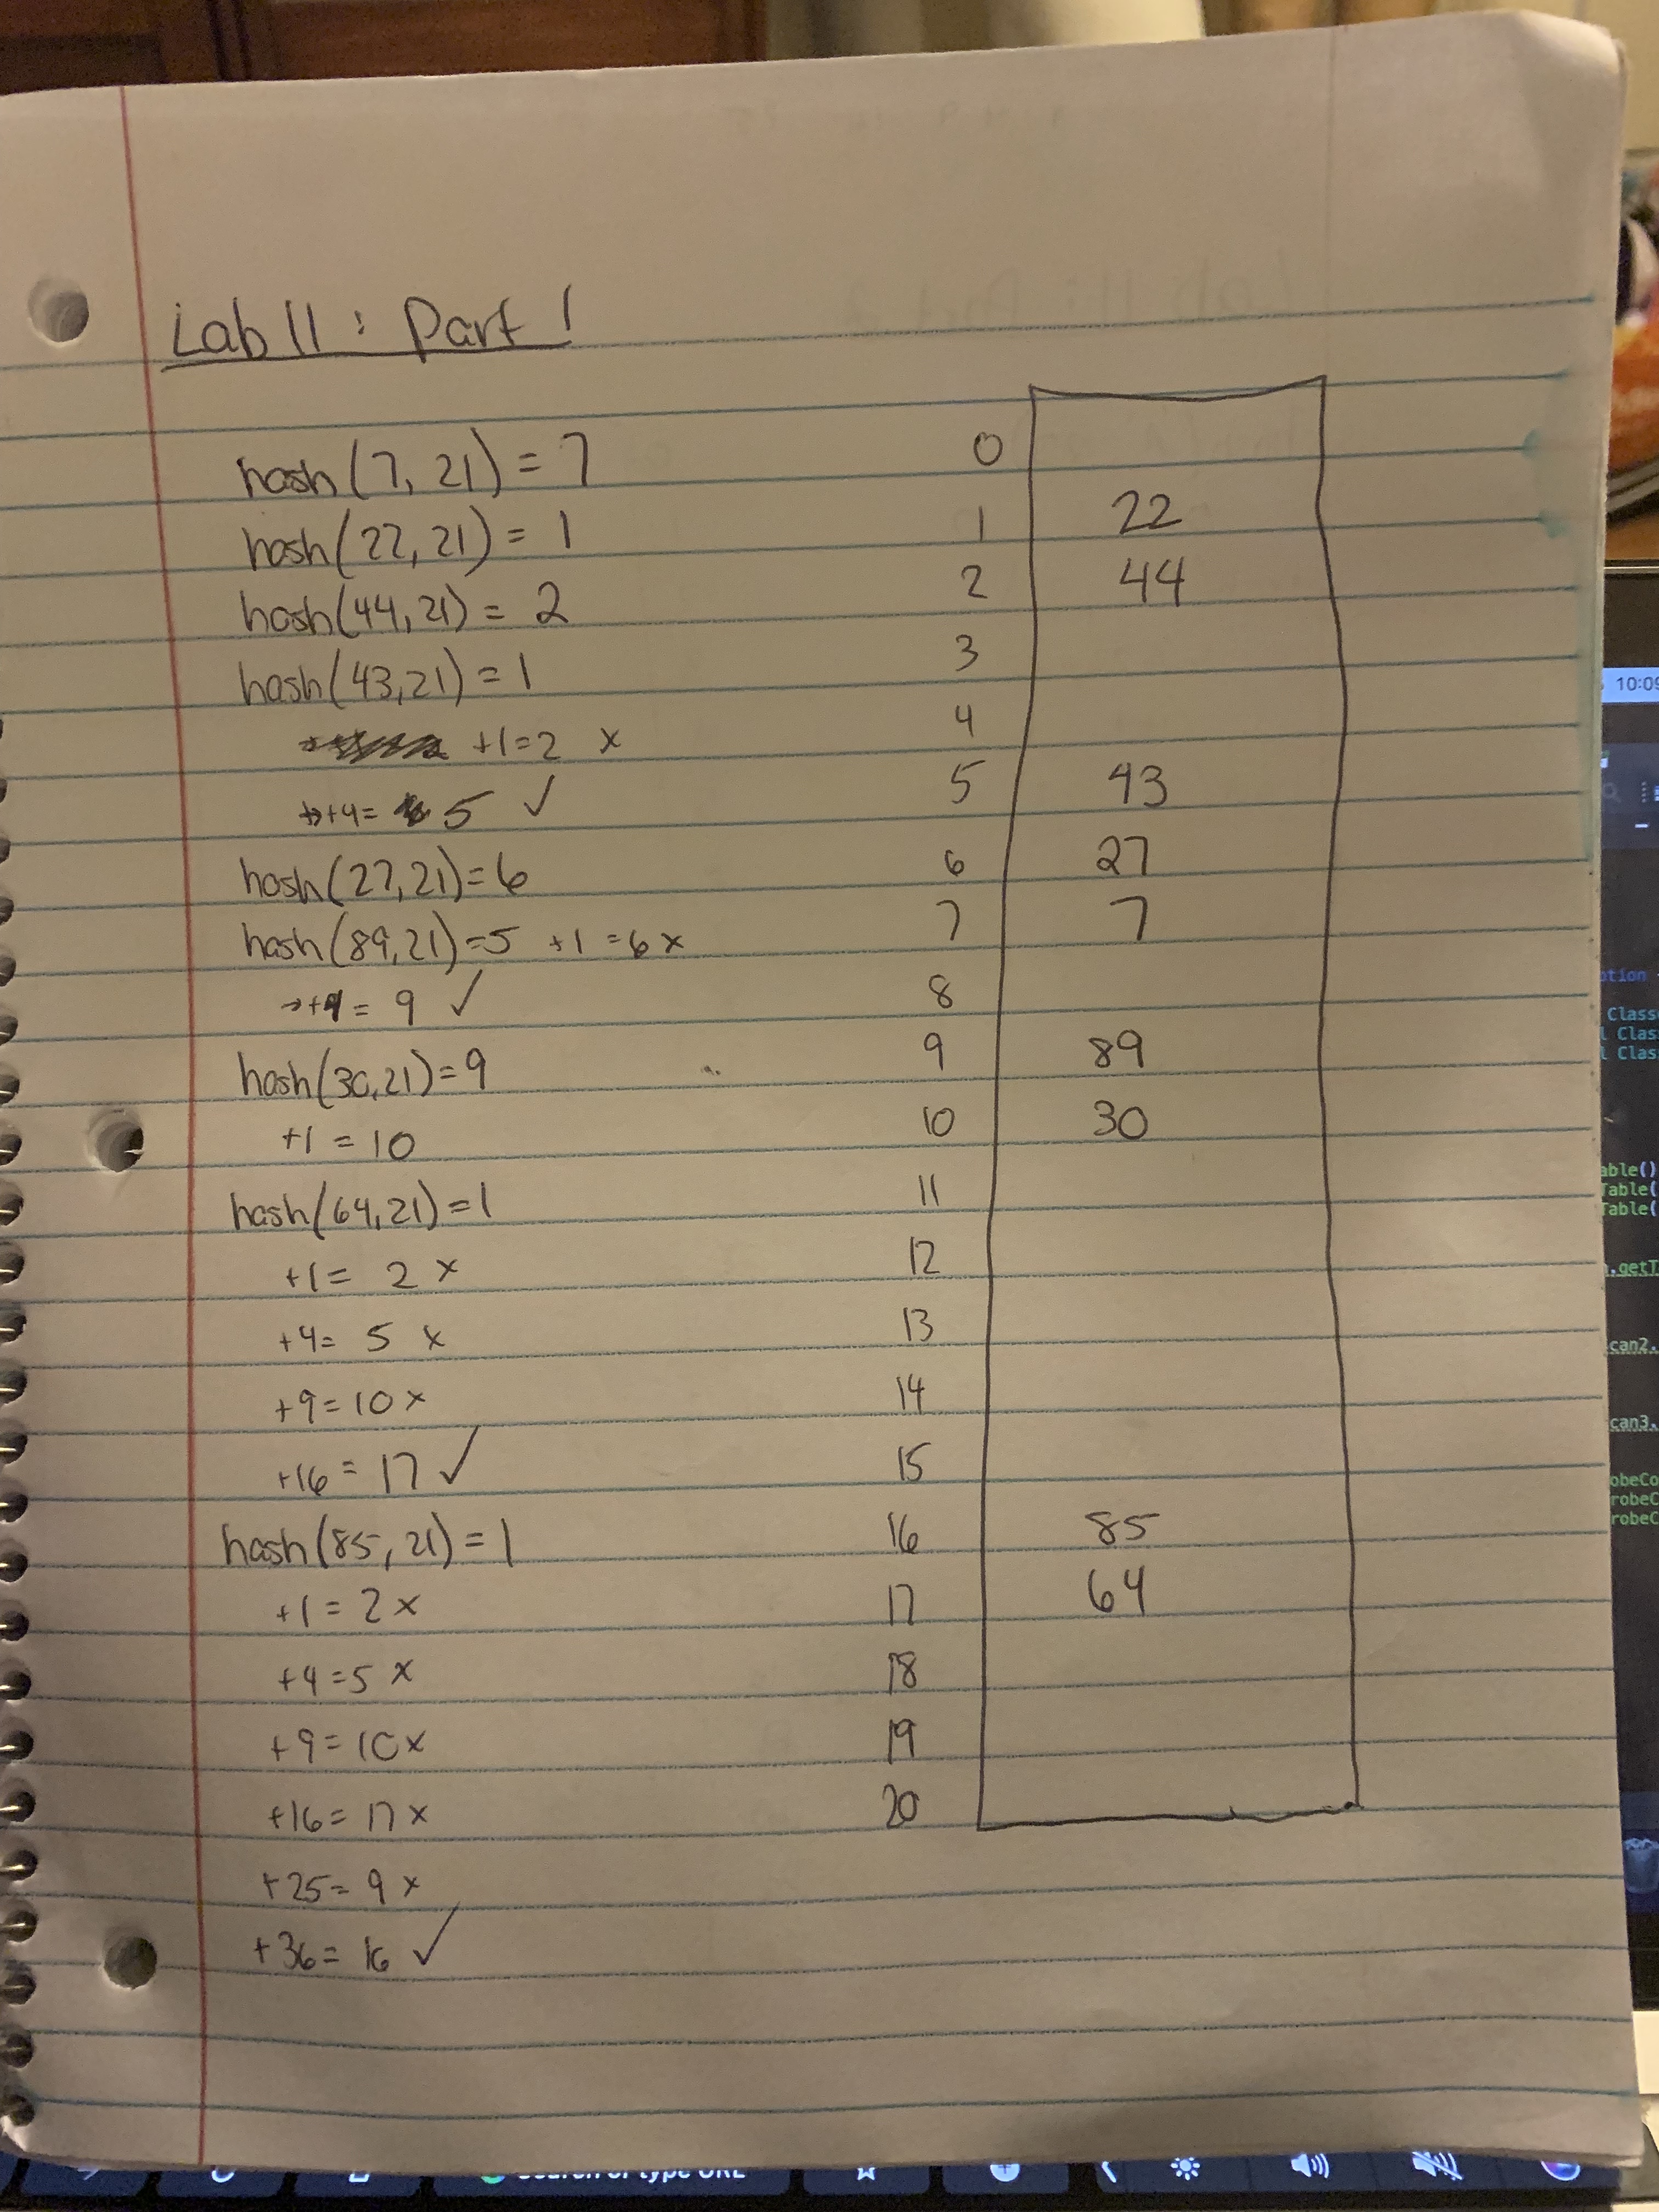 Lab 11: Part 1
hash(7, 21) = 7
hash(22, 21) = 1
hash(44, 21) = 2
hash(43, 21) = 1
+1=2 x
→+4= 5 ✓
hash(27, 21)=6
hash(89, 21)=5 +1 =6 x
→+4 = 9 ✓
hash(30, 21)=9
+1 = 10
hash(64, 21)=1
+1= 2 x
+4= 5 x
+9=10 x
+16= 17 ✓
hash(85, 21)=1
+1=2 x
+4=5 x
+9=10x
+16=17 x
+25=9 x
+36=16 ✓
0
1 22
2 44
3
4
5 43
6 27
7 7
8
9 89
10 30
11
12
13
14
15
16 85
17 64
18
19
20
10:09
Class
Class
Class
able()
Table(
Table(
.getT
can2.
can3.
obeCo
robeC
robeC